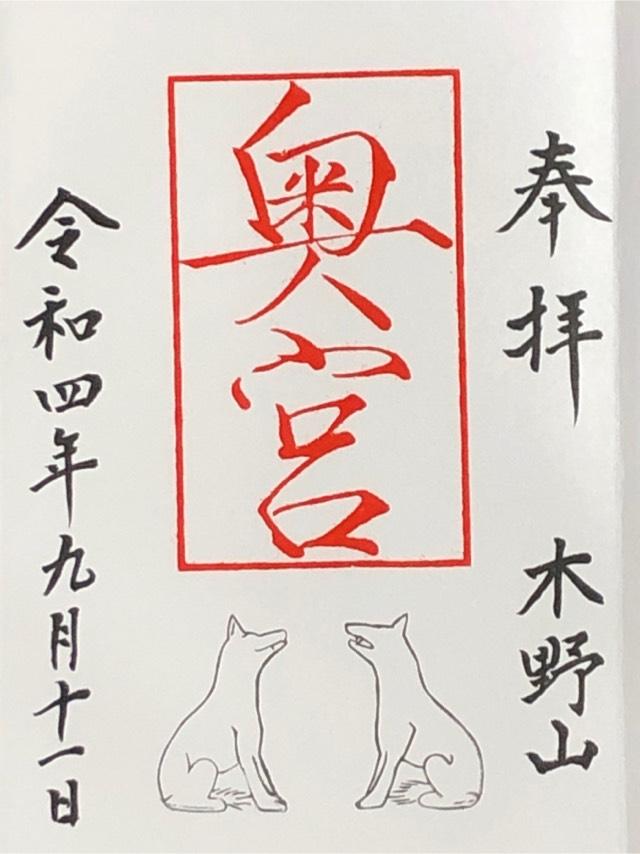 奉拝 木野山
奥宮
令和四年九月十一日